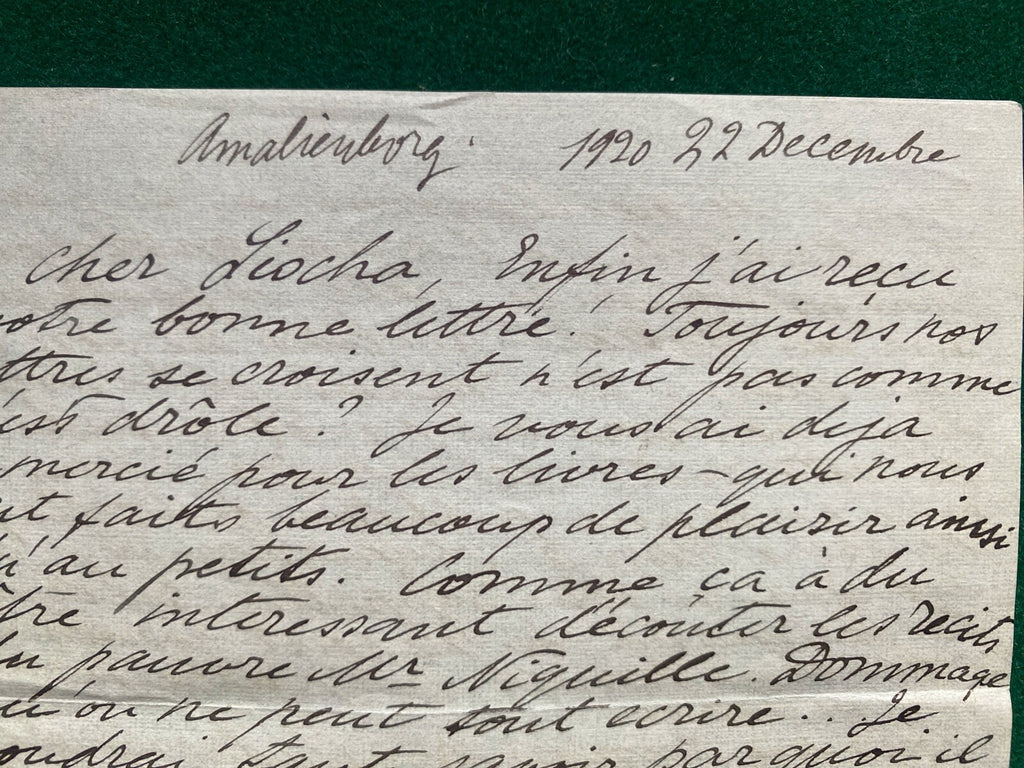 Amalienborg. 1920 22 Decembre
cher Liocha, Enfin j'ai reçu
votre bonne lettre! Toujours nos
ttres se croisent n'est pas comme
'est drôle? Je vous ai deja
mercié pour les livres – qui nous
nt faits beaucoup de plaisir ainsi
qu'au petits. Comme ça à du
être interessant d'écouter les recits
du pauvre Mr Niquille. Dommage
qu'on ne peut tout ecrire.. Je
oudrai tant savoir parquoi il